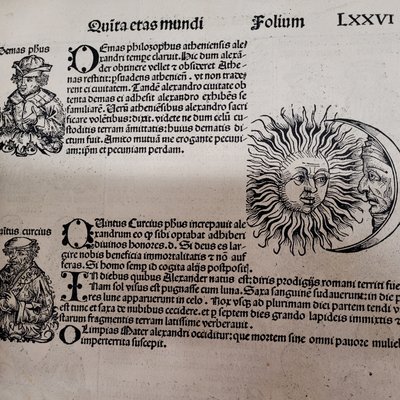 Quĩta etas mundi Folium LXXVI
Demas phus
DEmas philosophus atheniensis ale
xandri tempe claruit. Hic dum alex
ander obtinere vellet & obsideret Athe
nas restitit: psuadens atheniẽ. vt non trade
rent ei ciuitatem. Tandẽ alexandro ciuitate ob
tenta demas ei adhesit alexandro exhibẽs se
familiarẽ. Verũ athenẽsibus alexandro sacri
ficare volẽtibus: dixit. videte ne dum celũ cu
stoditis terram amittatis: huius dematis di
ctum fuit. Amico mutuã me erogante pecuni
am: ipm et pecuniam perdam.
ntus curcius
QUintus Curcius phus increpauit ale
xandrum eo qp sibi optabat adhiberi
diuinos honores. d. Si deus es lar
gire nobis beneficia immortalitatis z nõ auf
feras. Si homo semp id cogita alijs postposit
IN diebus quibus Alexander natus est: diris prodigijs romani territi fue
Nam sol visus est pugnasse cum luna. Saxa sanguinẽ sudauerunt: in die p
res lune apparuerunt in celo. Nox vsqz ad plurimam diei partem tendi v
est tunc et saxa de nubibus cecidere. et p septem dies grando lapideis immixtis &
starum fragmentis terram latissime verberauit.
OLimpias Mater alexandri occiditur: que mortem sine omni pauore mulieb
imperterrita suscepit.